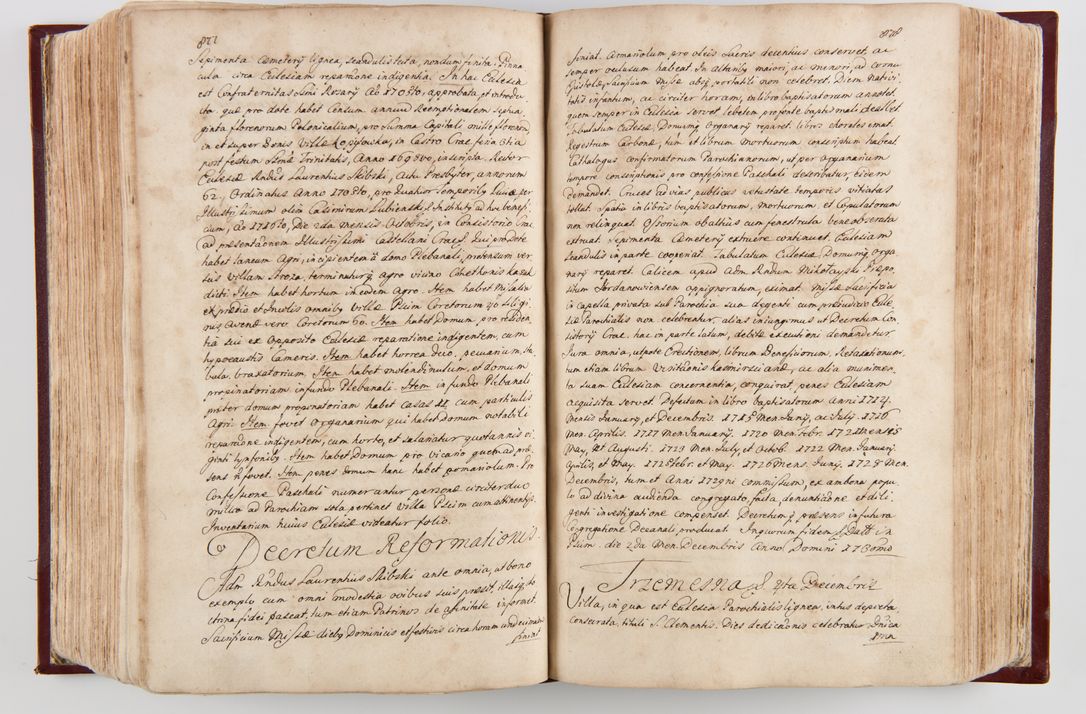 877
Sepimenta Cæmeterij lignea, scandulis tecta, nondum finita. Pinna
cula circa Ecclesiam reparatione indigentia. In hac Ecclesia
est Confraternitas Ssmi Rosarÿ Ao 1708vo, approbata, et introdu
cta: quæ pro dote habet Censum annuū Reemptionalem septua
ginta florenorum Polonicalium, pro Summa Capitali mille florenorū
in et super Bonis Villæ Kopytowka, in Castro Crac. feria 6tia
post festum Ssmæ Trinitatis, Anno 1698vo, inscripta. Rector
Ecclesiæ Rndus Laurentius Skibski, Actu Presbyter, annorum
62, Ordinatus Anno 1708vo, pro Quatuor Temporibq Lucæ per
Illustrissimum olim Casimirum Łubienski S. Institutq ad hoc benefi
cium, Ao 1716to, Die 2da mensis Octobris, in Consistorio Crac.
ad præsentaonem Illustrissimi Castellani Crac. Qui pro Dote
habet laneum Agri, incipientem à domo Plebanali, protensum ver
sus villam Stroza, terminaturq agro vicino Cmethonis
dicti Item habet hortum in eodem agro. Item habet Missalia
ex prædio et Incolis omnibq villæ Pcim Coretorum 40 Siligi
nis, avenæ vero Coretorum 60. Item habet Domum, pro residen
tiâ sui ex opposito Ecclesiæ reparatione indigentem, cum
hypocaustis Cameris. Item habet horrea duo, pecuarium, sta
bula, braxatorium Item habet molendinulum, et domum
propinatoriam in fundo Plebanali. Item in fundo Plebanali
præter domum propinatoriam habet casas 11, cum particulis
Agri. Item fovet organarium qui habet Domum notabili
reparaone indigentem, cum horto, et salariatur quotannis vi
ginti tynfonibq. Item habet Domum pro vicario quem ad præ
sens ñ fovet. Item penes domum hanc habet pomariolum. Pro
Confessione Paschali numerantur personæ circiter duo
millia ad Parochiam sola pertinet villa Pscim cum attinentijs.
Inventarium huius Ecclesiæ videatur folio.
Decretum Reformationis.
Adm Rndus Laurentius Skibski ante omnia, ut bono
exemplo cum omni modestia ovibus suis præsit, illasq do
ctrina fidei pascat, tum etiam Patrinos de affinitate informet.
Sacrificium Missæ diebq Dominicis et festivis circa horam undecimam
finiat
878
finiat. Armariolum pro oleis Sacris decentius conservet, ac
semper occlusum habeat. In altaribq maiori, ac minori, ad cornu
Epistolæ, Sacrificium Missæ absq portatili non celebret. Diem nativi
tatis infantum, ac circiter horam, in libro baptisatorum annotet
quem semper in Ecclesia servet, lebetem pro fonte baptismali dealbet
Tabulatum Ecclesiæ, Domumq organarij reparet. libros chorales emat.
Regestrum Carbonæ, tum et librum mortuorum conscriptum habeat
Cathalogus confirmatorum Parochianorum, ut per organarium
tempore conscriptionis pro confessione Paschali describatur, eidem
demandet. Cruces ad vias publicas vetustate temporis vitiatas
tollat. Spatia in libris baptisatorum, mortuorum, et Copulatorum
non relinquat. Ossorium obaltius cum fenestrula bene obserata
extruat. Sepimenta Cæmeterij extruere continuet. Ecclesiam
scandulis in parte cooperiat. Tabulatum Ecclesiæ Domumq orga
narij reparet. Calicem apud Adm Rndum Mikołayski Præpo
situm Jordanoviensem oppignoratum, eximat. Missæ Sacrificia
in capella privata sub Parochia sua degenti cum præjudicio Eccle
siæ Parochialis non celebrentur, alias iniungimus ut Decretum Con
sistorÿ Crac. hac in parte latum, debitæ executioni demandetur.
Jura omnia, utpote Erectionem, librum Beneficiorum, Retaxationum,
tum etiam librum visitationis Kazmirscianæ, ac alia munimen
ta suam Ecclesiam concernentia, conquirat, penes Ecclesiam
acquisita servet. Defectum in libro baptisatorum Anni 1714.
Mensis January, et Decembris. 1715 Men. Junÿ, ac Julÿ. 1716
Men. Aprilis. 1717 Men. Januarÿ. 1720 Men. Febr. 1721 Mensis
May, et Augusti. 1723 Men. July, et Octob. 1722 Men. Januarÿ
Aprilis, et May. 1725 Febr. et May. 1726 Mens. Junÿ. 1728 Men.
Decembris, tum et Anni 1729ni commissum, ex ambona popu
lo ad divina audienda congregato, facta, denuntiaone et dili
genti investigatione compenset. Decretum q. præsens in futura
Congregatione Decanali producat. In quorum fidem S. Datt in
Pcim. die 2da Men. Decembris Anno Domini 1730mo
Trzemesna D. 4ta Decembris
Villa, in qua est Ecclesia Parochialis lignea, intus depicta,
Consecrata, tituli S. Clementis. Dies dedicaonis celebratur Dnica